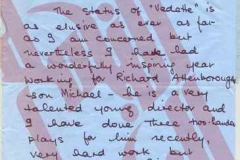 The status of "Vedette" is
as elusive as ever as far
as I am concerned but
nevertheless I have had
a wonderfully inspiring year
working for Richard Attenborough's
son Michael - he is a very
talented young director and
I have done three two-hander
plays for him recently,
very hard work but